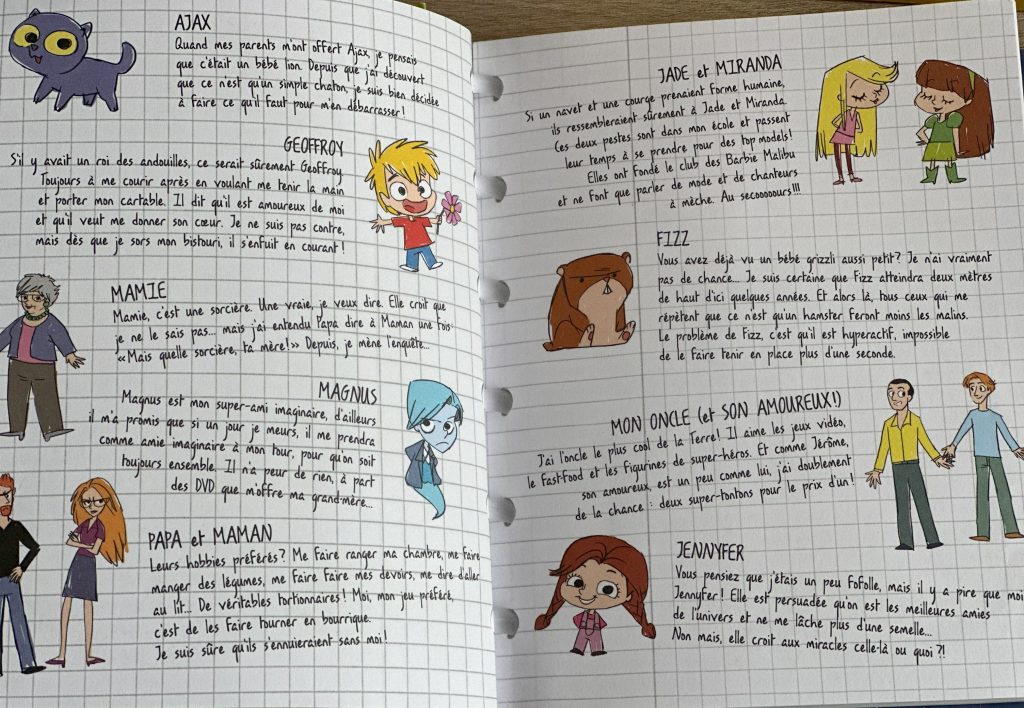 AJAX
Quand mes parents m'ont offert Ajax, je pensais
que c'était un bébé lion. Depuis que j'ai découvert
que ce n'est qu'un simple chaton, je suis bien décidée
à faire ce qu'il faut pour m'en débarrasser !
GEOFFROY
S'il y avait un roi des andouilles, ce serait sûrement Geoffroy.
Toujours à me courir après en voulant me tenir la main
et porter mon cartable. Il dit qu'il est amoureux de moi
et qu'il veut me donner son cœur. Je ne suis pas contre,
mais dès que je sors mon bistouri, il s'enfuit en courant !
MAMIE
Mamie, c'est une sorcière. Une vraie, je veux dire. Elle croit que
je ne le sais pas... mais j'ai entendu Papa dire à Maman une fois :
«Mais quelle sorcière, ta mère !» Depuis, je mène l'enquête...
MAGNUS
Magnus est mon super-ami imaginaire, d'ailleurs
il m'a promis que si un jour je meurs, il me prendra
comme amie imaginaire à mon tour, pour qu'on soit
toujours ensemble. Il n'a peur de rien, à part
des DVD que m'offre ma grand-mère...
PAPA et MAMAN
Leurs hobbies préférés ? Me faire ranger ma chambre, me faire
manger des légumes, me faire faire mes devoirs, me dire d'aller
au lit... De véritables tortionnaires ! Moi, mon jeu préféré,
c'est de les faire tourner en bourrique.
Je suis sûre qu'ils s'ennuieraient sans moi !
JADE et MIRANDA
Si un navet et une courge prenaient forme humaine,
ils ressembleraient sûrement à Jade et Miranda.
Ces deux pestes sont dans mon école et passent
leur temps à se prendre pour des top models !
Elles ont fondé le club des Barbie Malibu
et ne font que parler de mode et de chanteurs
à mèche. Au secoooours !!!
FIZZ
Vous avez déjà vu un bébé grizzli aussi petit ? Je n'ai vraiment
pas de chance... Je suis certaine que Fizz atteindra deux mètres
de haut d'ici quelques années. Et alors là, tous ceux qui me
répètent que ce n'est qu'un hamster feront moins les malins.
Le problème de Fizz, c'est qu'il est hyperactif, impossible
de le faire tenir en place plus d'une seconde.
MON ONCLE (et SON AMOUREUX !)
J'ai l'oncle le plus cool de la Terre ! Il aime les jeux vidéo,
le fast-food et les figurines de super-héros. Et comme Jérôme,
son amoureux, est un peu comme lui, j'ai doublement
de la chance : deux super-tontons pour le prix d'un !
JENNYFER
Vous pensiez que j'étais un peu fofolle, mais il y a pire que moi :
Jennyfer ! Elle est persuadée qu'on est les meilleures amies
de l'univers et ne me lâche plus d'une semelle...
Non mais, elle croit aux miracles celle-là ou quoi ?!